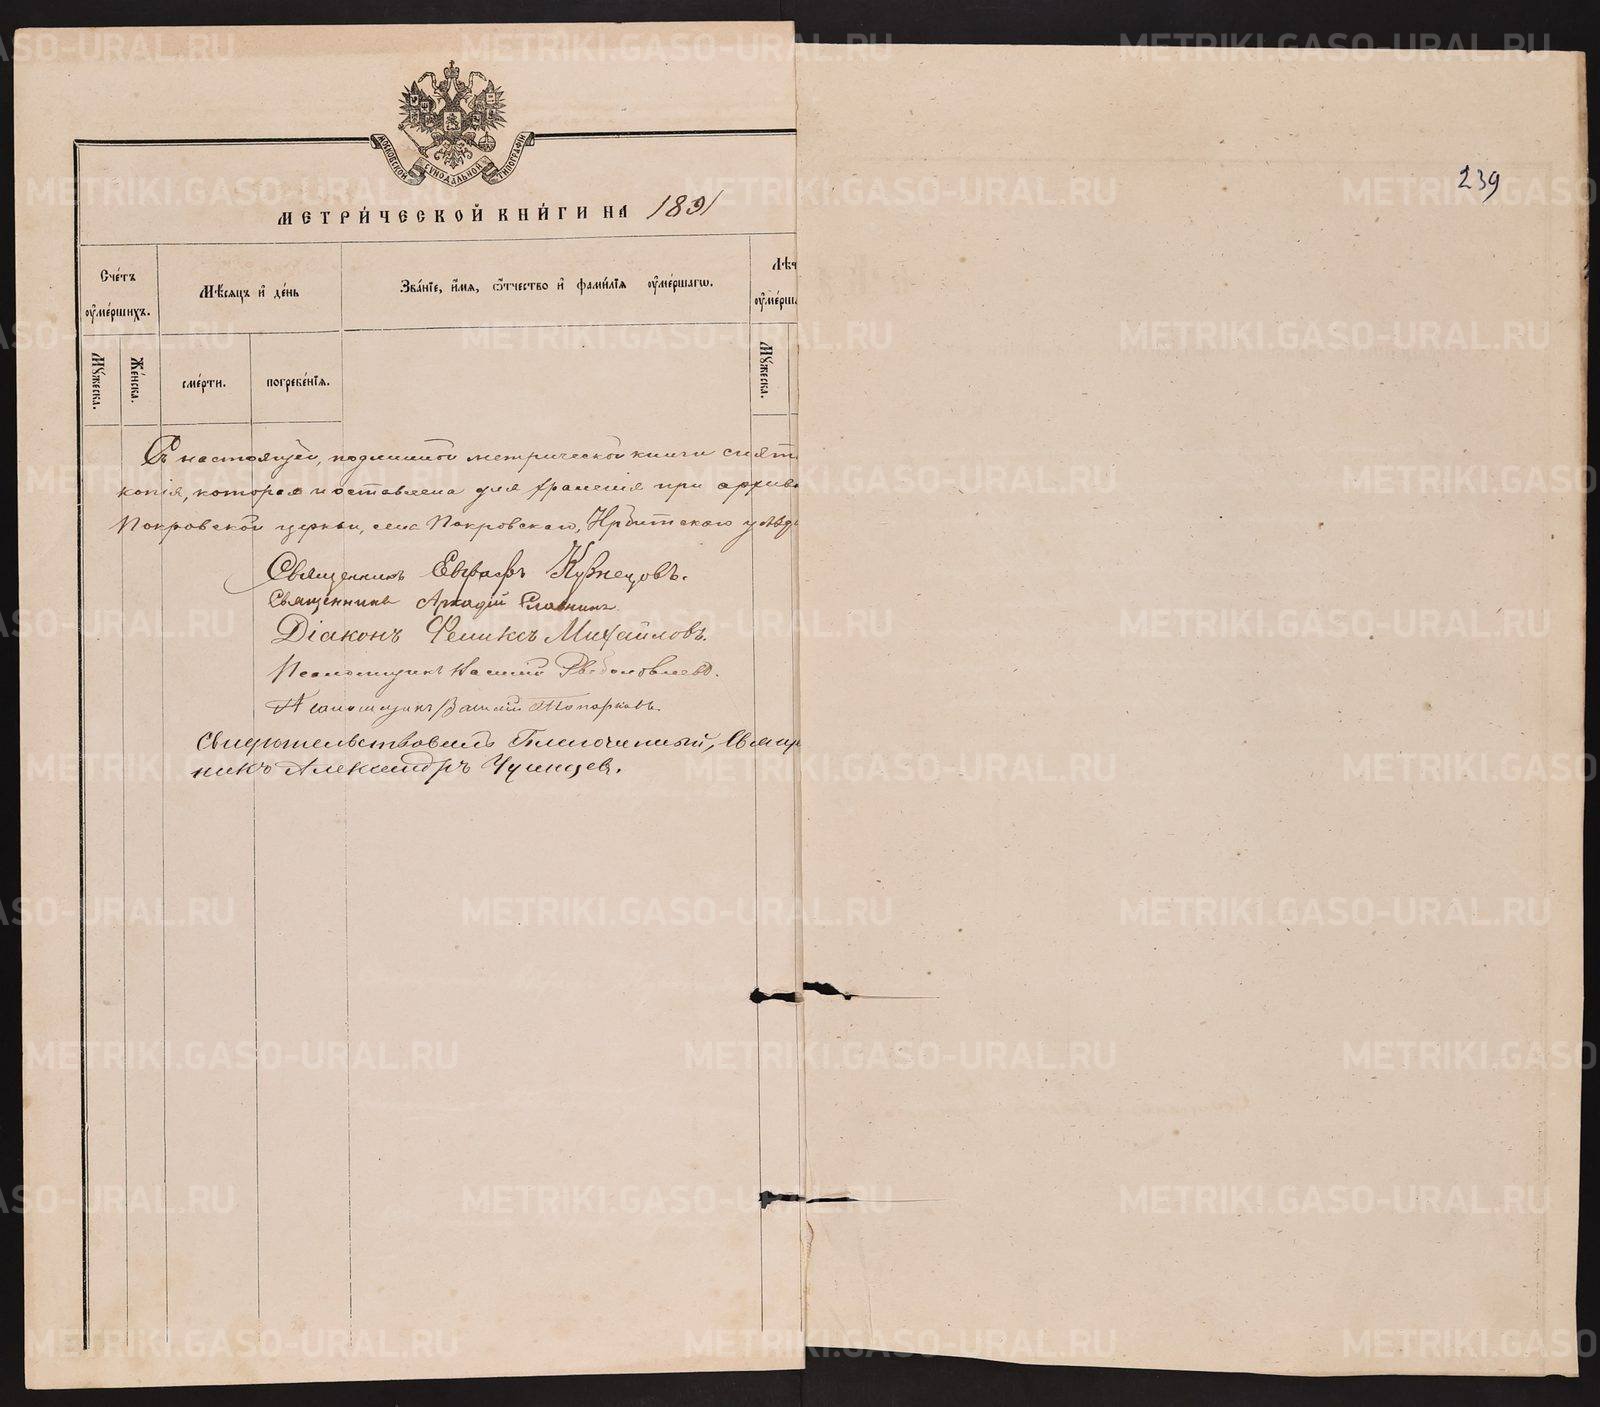 МОСКОВСКОЙ СѴНОДАЛЬНОЙ ТИПОГРАФІИ
МЕТРИ́ЧЕСКОЙ КНИ́ГИ НА 1891
239
Сче́тъ ᲂу҆ме́ршихъ.
Мѣ́сяцъ и҆ де́нь
Зва́нїе, и҆́мя, ѻ҆́тчество и҆ фами́лїѧ ᲂу҆ме́ршагѡ.
Лѣ́т
ᲂу҆ме́рша
Мꙋ́жеска.
Же́нска.
сме́рти.
погребе́нїѧ.
Мꙋ́жеска.
Съ настоящей, подлинной метрической книги снят
копія, которая и оставлена для храненія при архив
Покровской церкви, села Покровскаго, Ирбитскаго уѣзд
Священникъ Евграфъ Кузнецовъ.
Священникъ Аркадій Славнинъ
Діаконъ Феликсъ Михайловъ.
Псаломщикъ Василій
Псаломщикъ Василій Топорковъ.
Свидѣтельствовалъ Благочинный, Свящ
никъ Александръ
METRIKI.GASO-URAL.RU